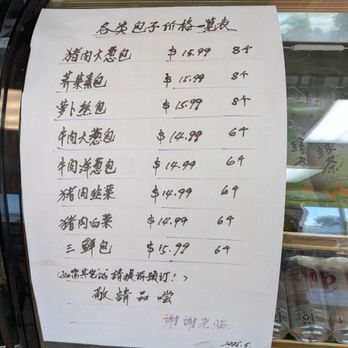 各类包子价格一览表
猪肉大葱包 $15.99 8个
荠菜素包 $15.99 8个
萝卜丝包 $15.99 8个
牛肉大葱包 $14.99 6个
牛肉洋葱包 $14.99 6个
猪肉韭菜 $14.99 6个
猪肉白菜 $14.99 6个
三鲜包 $15.99 6个
(如需其它的请提前预订!)
敬請品嚐
谢谢光临
绿茶